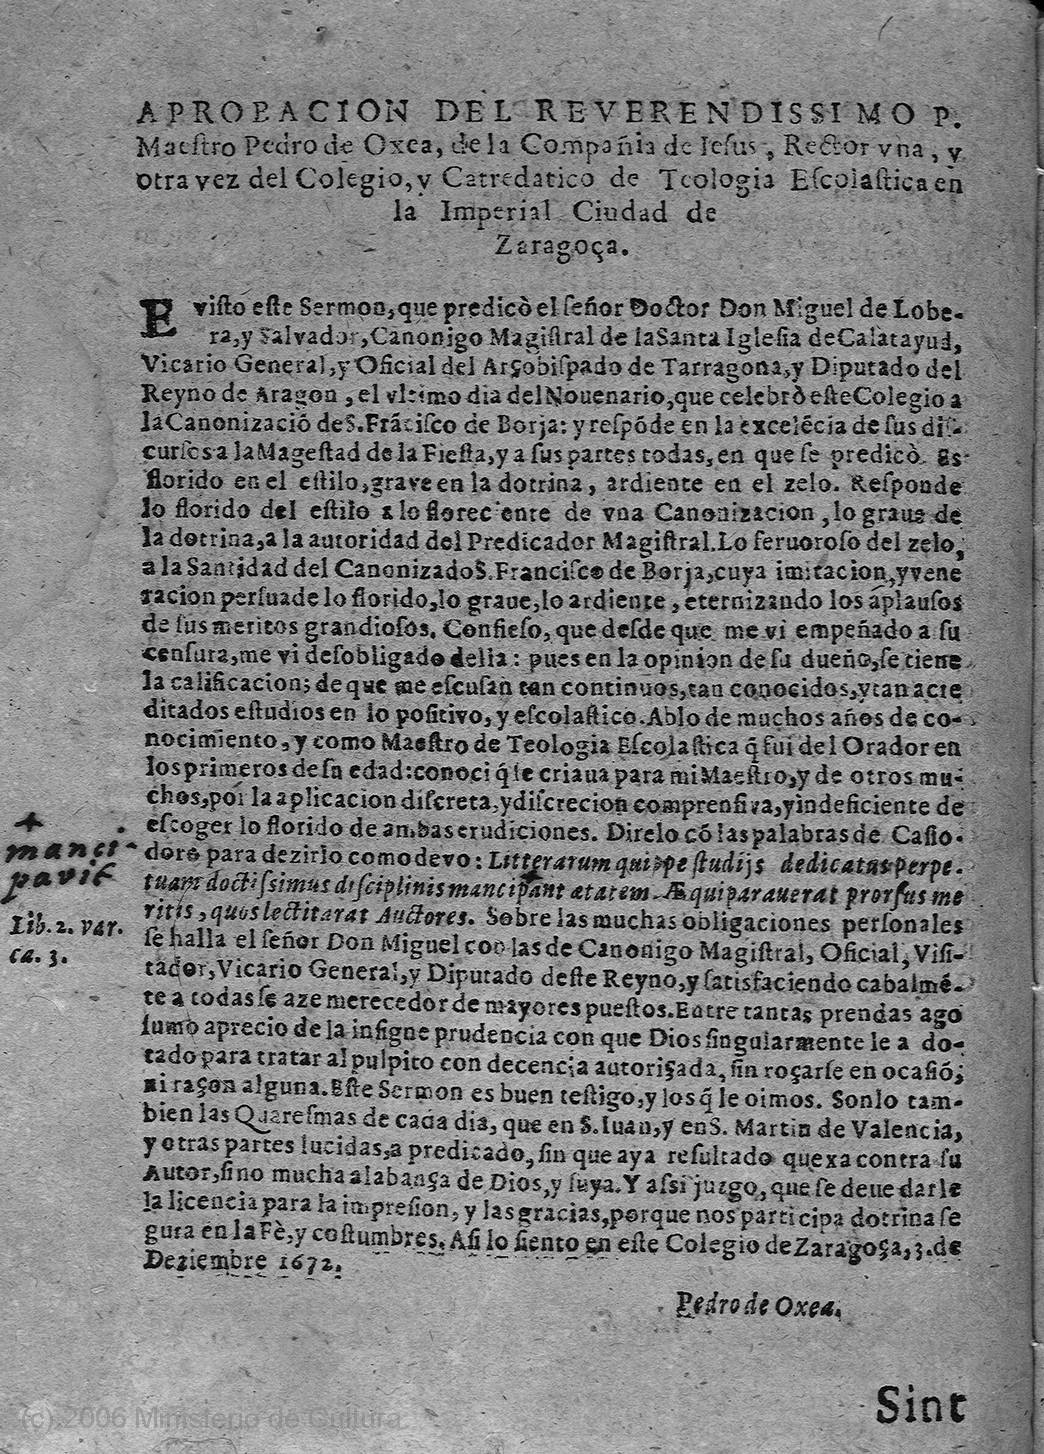 APROBACION DEL REVERENDISSIMO P.
Maeſtro Pedro de Oxea, de la Compañia de Ieſus, Rector vna, y
otra vez del Colegio, y Catredatico de Teologia Eſcolaſtica en
la Imperial Ciudad de
Zaragoça.
E viſto eſte Sermon, que predicò el ſeñor Doctor Don Miguel de Lobe-
ra, y Salvador, Canonigo Magiſtral de la Santa Igleſia de Calatayud,
Vicario General, y Oficial del Arçobiſpado de Tarragona, y Diputado del
Reyno de Aragon, el vltimo dia del Nouenario, que celebrò eſte Colegio a
la Canonizació de S. Fráciſco de Borja: y reſpóde en la excelécia de ſus diſ-
curſos a la Mageſtad de la Fieſta, y a ſus partes todas, en que ſe predicò. Es
florido en el eſtilo, grave en la dotrina, ardiente en el zelo. Reſponde
lo florido del eſtilo a lo floreciente de vna Canonizacion, lo graue de
la dotrina, a la autoridad del Predicador Magiſtral. Lo feruoroſo del zelo,
a la Santidad del Canonizado S. Franciſco de Borja, cuya imitacion, y vene
racion perſuade lo florido, lo graue, lo ardiente, eternizando los aplauſos
de ſus meritos grandioſos. Confieſo, que deſde que me vi empeñado a ſu
cenſura, me vi deſobligado della: pues en la opinion de ſu dueño, ſe tiene
la calificacion; de que me eſcuſan tan continuos, tan conocidos, y tan acre
ditados eſtudios en lo poſitivo, y eſcolaſtico. Ablo de muchos años de co-
nocimiento, y como Maeſtro de Teologia Eſcolaſtica q̃ fui del Orador en
los primeros de ſu edad: conoci q̃ ſe criaua para mi Maeſtro, y de otros mu-
chos, por la aplicacion diſcreta, y diſcrecion comprenſiva, y indeficiente de
eſcoger lo florido de ambas erudiciones. Direlo có las palabras de Caſio-
doro para dezirlo como devo: Litterarum quippe ſtudijs dedicatus perpe-
tuam doctiſsimus diſciplinis mancipant ætatem. Æquiparauerat prorſus me
ritis, quos lectitarat Auctores. Sobre las muchas obligaciones perſonales
ſe halla el ſeñor Don Miguel con las de Canonigo Magiſtral, Oficial, Viſi-
tador, Vicario General, y Diputado deſte Reyno, y ſatisfaciendo cabalmé-
te a todas ſe aze merecedor de mayores pueſtos. Entre tantas prendas ago
ſumo aprecio de la inſigne prudencia con que Dios ſingularmente le a do-
tado para tratar al pulpito con decencia autoriçada, ſin roçarſe en ocaſió,
ni raçon alguna. Eſte Sermon es buen teſtigo, y los q̃ le oimos. Sonlo tam-
bien las Quareſmas de cada dia, que en S. Iuan, y en S. Martin de Valencia,
y otras partes lucidas, a predicado, ſin que aya reſultado quexa contra ſu
Autor, ſino mucha alabança de Dios, y ſuya. Y aſsi juzgo, que ſe deue darle
la licencia para la impreſion, y las gracias, porque nos participa dotrina ſe
gura en la Fè, y coſtumbres. Aſi lo ſiento en eſte Colegio de Zaragoça, 3. de
Deziembre 1672.
Pedro de Oxea.
Sint
manci-
pavit
Lib. 2. var.
ca. 3.
(c) 2006 Ministerio de Cultura